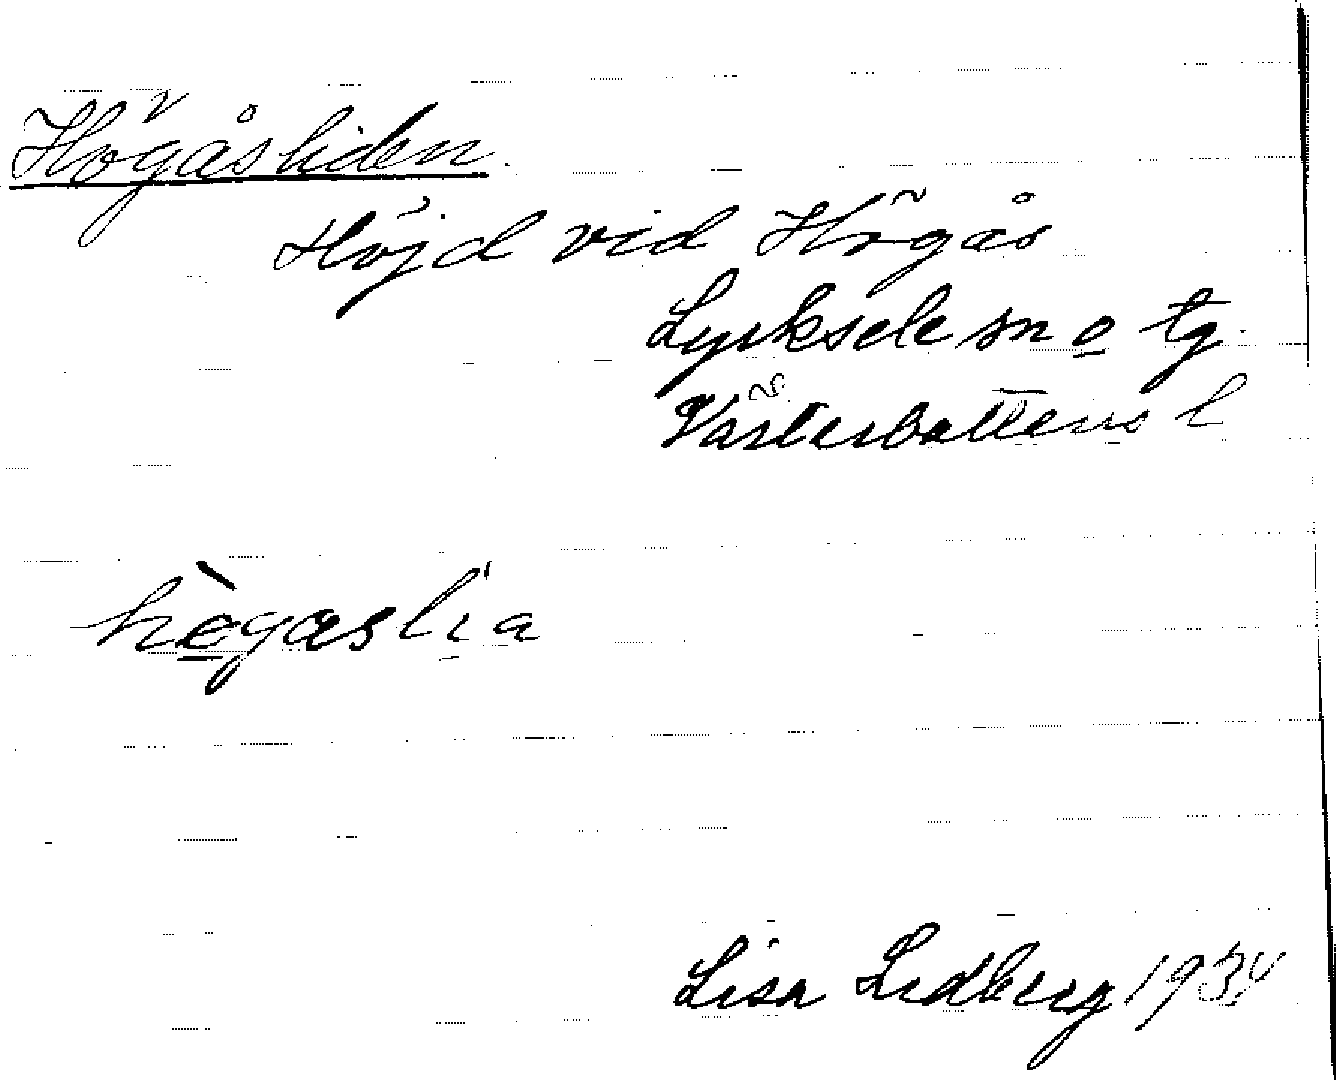 Högåsliden.
Höjd vid Högås
Lycksele sn o tg.
Västerbottens l
hègaslia
Lisa Lidberg 1934